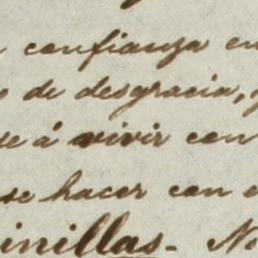 confianza en
de desgracia, y
se á vivir con
se hacer con
inillas. No